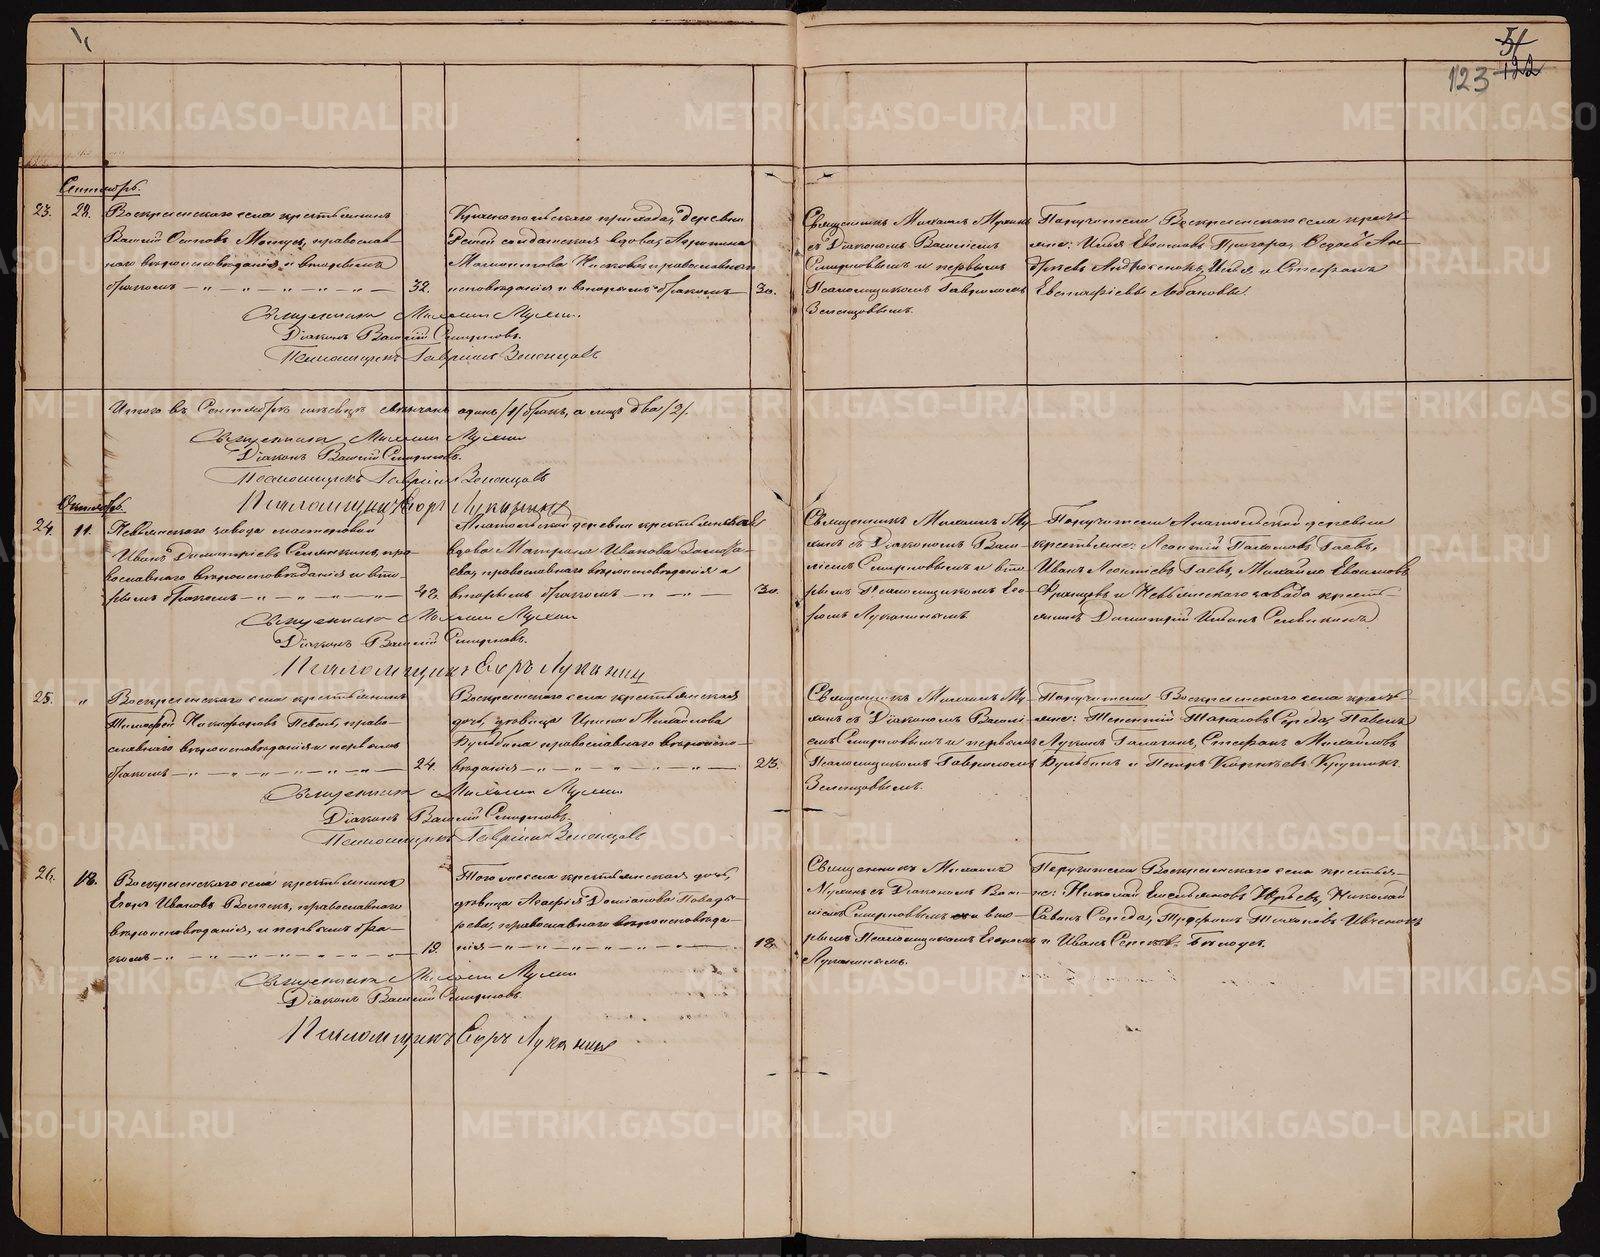 51
122
123
Сентябрь.
23. 28. Воскресенскаго села крестьянинъ
Василій Осиповъ православ-
наго вѣроисповѣданія и вторымъ
бракомъ 32.
Краснопольскаго прихода, деревни
солдатская вдова,
православнаго
исповѣданія и вторымъ бракомъ 30.
Священникъ Михаилъ Мухинъ
съ Діакономъ Василіемъ
Смирновымъ и первымъ
Псаломщикомъ Гавріиломъ
Зеленцовымъ.
Поручители Воскресенскаго села кресть-
яне: Илья Евѳимовъ Пригора, Ѳедосъ Ан-
дреевъ Илья и Стефанъ
Евстафіевы Лобановы.
Священникъ Михаилъ Мухинъ.
Діаконъ Василій Смирновъ.
Псаломщикъ Гавріилъ Зеленцовъ
Итого въ Сентябрѣ мѣсяцѣ одинъ /1/ бракъ, а лицъ два /2/.
Священникъ Михаилъ Мухинъ
Діаконъ Василій Смирновъ.
Псаломщикъ Гавріилъ Зеленцовъ
Псаломщикъ Егоръ Луканинъ
Октябрь.
24. 11. Невьянскаго завода мастеровой
Иванъ Димитріевъ пра-
вославнаго вѣроисповѣданія и вто-
рымъ бракомъ 42.
деревни крестьянская
вдова Матрона Иванова
ева, православнаго вѣроисповѣданія и
вторымъ бракомъ 30.
Священникъ Михаилъ Му-
хинъ съ Діакономъ Васи-
ліемъ Смирновымъ и вто-
рымъ Псаломщикомъ Его-
ромъ Луканинымъ.
Поручители деревни
крестьяне: Леонтій Пахомовъ Гаевъ,
Иванъ Леонтіевъ Гаевъ, Михайло Евѳимовъ
и Невьянскаго завода кресть-
янинъ Димитрій
Священникъ Михаилъ Мухинъ
Діаконъ Василій Смирновъ.
Псаломщикъ Егоръ Луканинъ
25. " Воскресенскаго села крестьянинъ
Тимофей Никифоровъ право-
славнаго вѣроисповѣданія и первымъ
бракомъ 24.
Воскресенскаго села крестьянская
дочь, дѣвица Ирина Михайлова
Бульбина православнаго вѣроиспо-
вѣданія 23.
Священникъ Михаилъ Му-
хинъ съ Діакономъ Василі-
емъ Смирновымъ и первымъ
Псаломщикомъ Гавріиломъ
Зеленцовымъ.
Поручители Воскресенскаго села кресть-
яне: Терентій Тарасовъ Середа, Павелъ
Лукинъ Галаганъ, Стефанъ Михайловъ
Бульбинъ и Петръ Корнѣевъ Крутикъ.
Священникъ Михаилъ Мухинъ
Діаконъ Василій Смирновъ.
Псаломщикъ Гавріилъ Зеленцовъ
26. 18. Воскресенскаго села крестьянинъ
Егоръ Ивановъ православнаго
вѣроисповѣданія, и первымъ бра-
комъ 19.
Того же села крестьянская дочь,
дѣвица Агафія Доміанова
рева, православнаго вѣроисповѣда-
нія 18.
Священникъ Михаилъ
Мухинъ съ Діакономъ Васи-
ліемъ Смирновымъ и вто-
рымъ Псаломщикомъ Егоромъ
Луканинымъ.
Поручители Воскресенскаго села крестья-
не: Николай Емельяновъ Николай
Савинъ Середа, Трофимъ Тихоновъ Ивченокъ
и Иванъ Сергѣевъ Бѣлоусъ.
Священникъ Михаилъ Мухинъ
Діаконъ Василій Смирновъ
Псаломщикъ Егоръ Луканинъ
METRIKI.GASO-URAL.RU